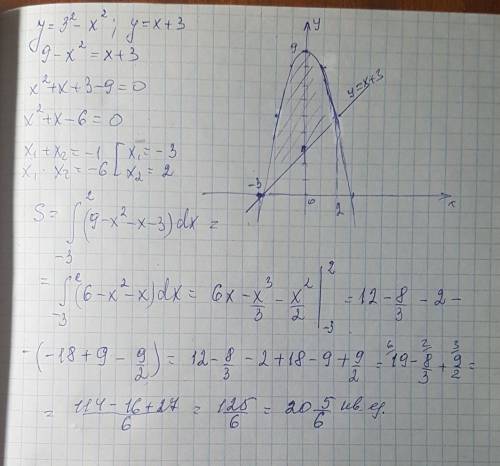 y = 3² - x² ; y = x+3
9 - x² = x+3
x² + x + 3 - 9 = 0
x² + x - 6 = 0
x₁ + x₂ = -1 [ x₁ = -3
x₁ · x₂ = -6 [ x₂ = 2
y
9
y=x+3
-3
0
2
x
S = ∫₋₃² (9 - x² - x - 3) dx =
= ∫₋₃² (6 - x² - x) dx = 6x - x³/3 - x²/2 |₋₃² = 12 - 8/3 - 2 -
- (-18 + 9 - 9/2) = 12 - 8/3 - 2 + 18 - 9 + 9/2 = ⁶19 - ²8/3 + ³9/2 =
= (114 - 16 + 27)/6 = 125/6 = 20 5/6 кв. ед.